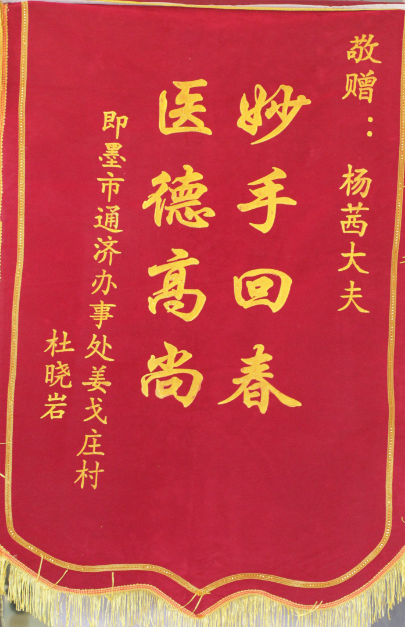 敬赠：杨茜大夫
妙手回春
医德高尚
即墨市通济办事处姜戈庄村
杜晓岩